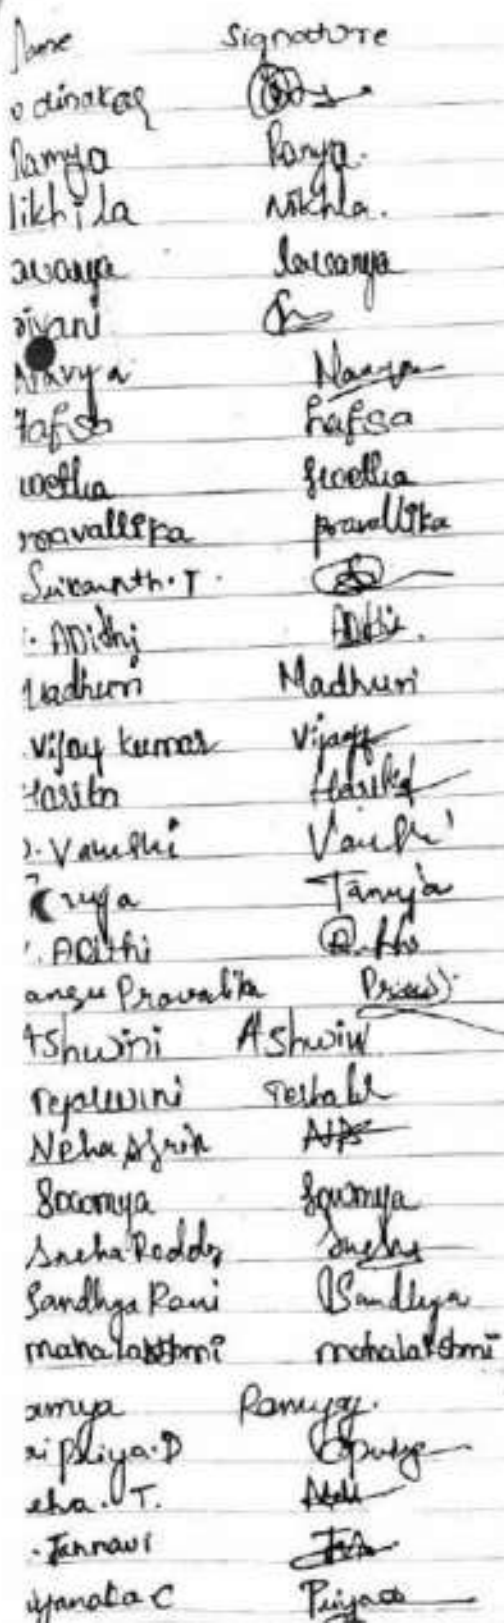 Name Signature
dinakar
Ramya Ramya.
likhila Nikhla.
avanya lavanya
ivani
Navya Navya
Hafsa hafsa
wetha swetha
ravallika pravallika
Srikanth.T.
. Adithi Adithi.
Madhuri Madhuri
.Vijay kumar Vijay
Harika Harika
. Vaishni Vaish
Tanuja
. Adithi
Pravalika
Ashwini Ashwini
Tejaswini
Neha Afrin
Sowmya Sowmya
Sneha Reddy Sneha
Sandhya Rani Sandhya
mahalakshmi mahalakshmi
amya Ramya
ri priya.D
eha. T.
. Jannavi
iyanka C Priyanka